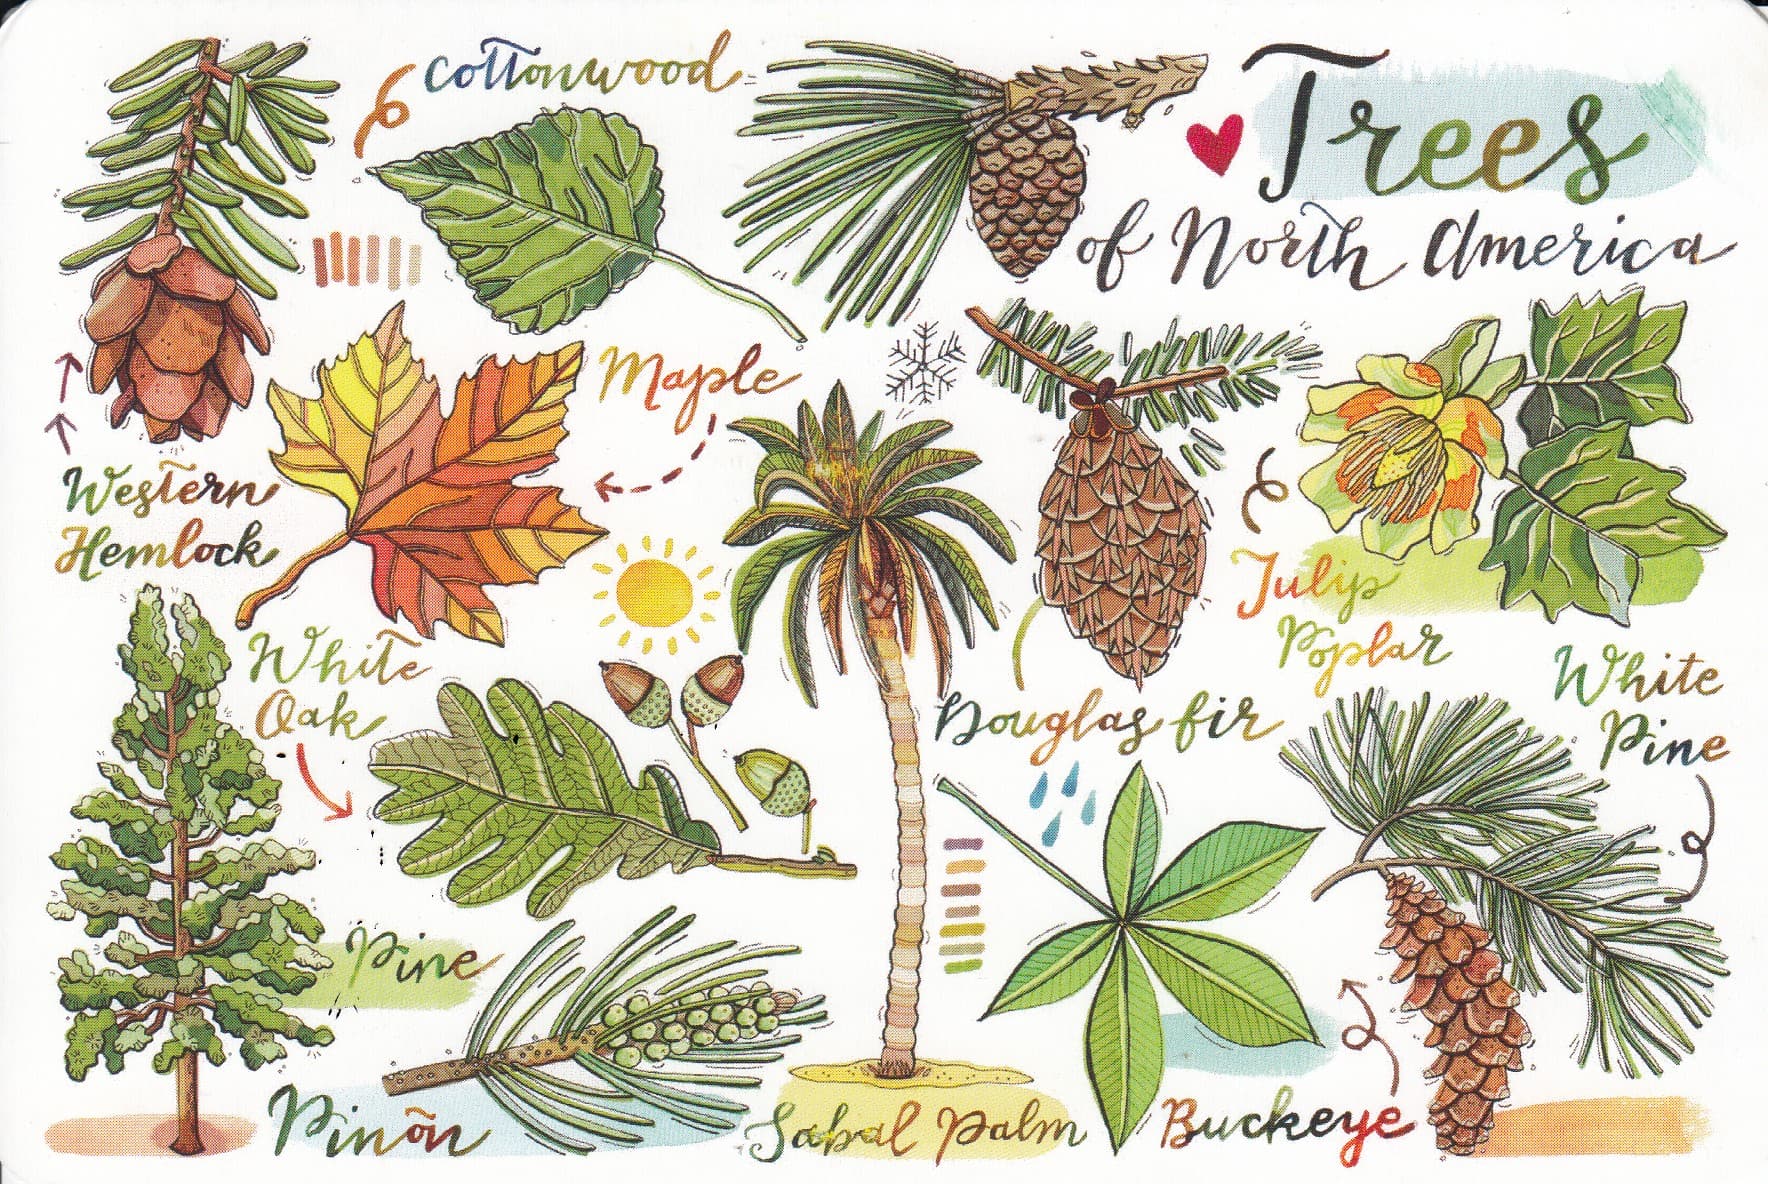 Trees
of North America
cottonwood
Maple
Western
Hemlock
White
Oak
Tulip
Poplar
Douglas fir
White
Pine
Pine
Pinõn
Sabal Palm
Buckeye